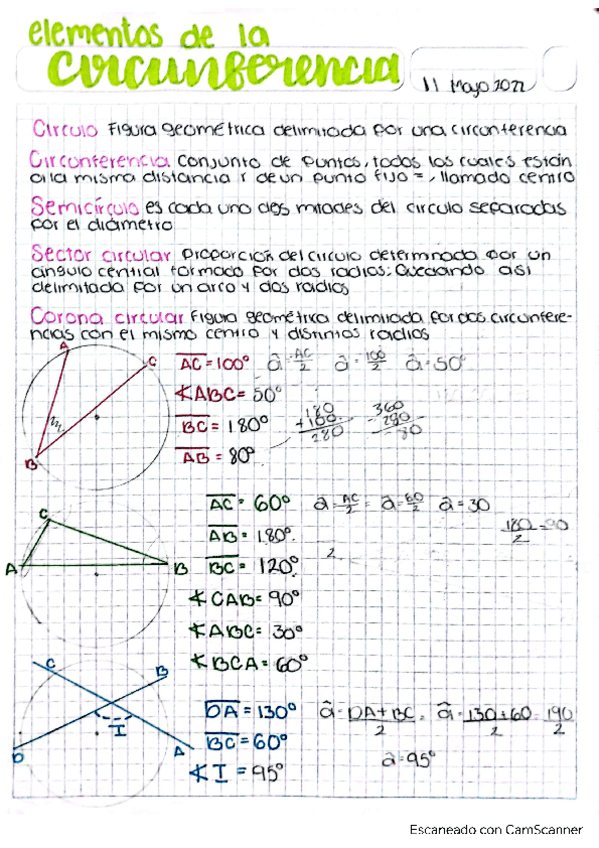 elementos de la
circunferencia
11 Mayo 2022
Circulo Figura geométrica delimitada por una circunferencia
Circunferencia Conjunto de puntos, todos los cuales están
a la misma distancia r de un punto fijo =, llamado centro
Semicírculo es cada uno dos mitades del circulo separadas
por el diámetro
Sector circular Proporción del circulo determinado por un
angulo central formado por dos radios; Quedando asi
delimitada por un arco y dos radios
Corona circular Figura geométrica delimitada por dos circunfere-
ncias con el mismo centro y distintos radios
A
C
B
m.
AC = 100° â = AC/2 â = 100/2 â = 50°
∢ABC = 50°
BC = 180°
180 +100 280
360 - 280 80
AB = 80°
C
A
B
AC = 60° â = AC/2 = â = 60/2 â = 30
180/2 = 90
AB = 180°.
2
BC = 120°
∢CAB = 90°
∢ABC = 30°
∢BCA = 60°
C
B
I
D
A
DA = 130° â = DA+BC/2 = â = 130+60/2 = 190/2
BC = 60°
â = 95°
∢I = 95°
Escaneado con CamScanner